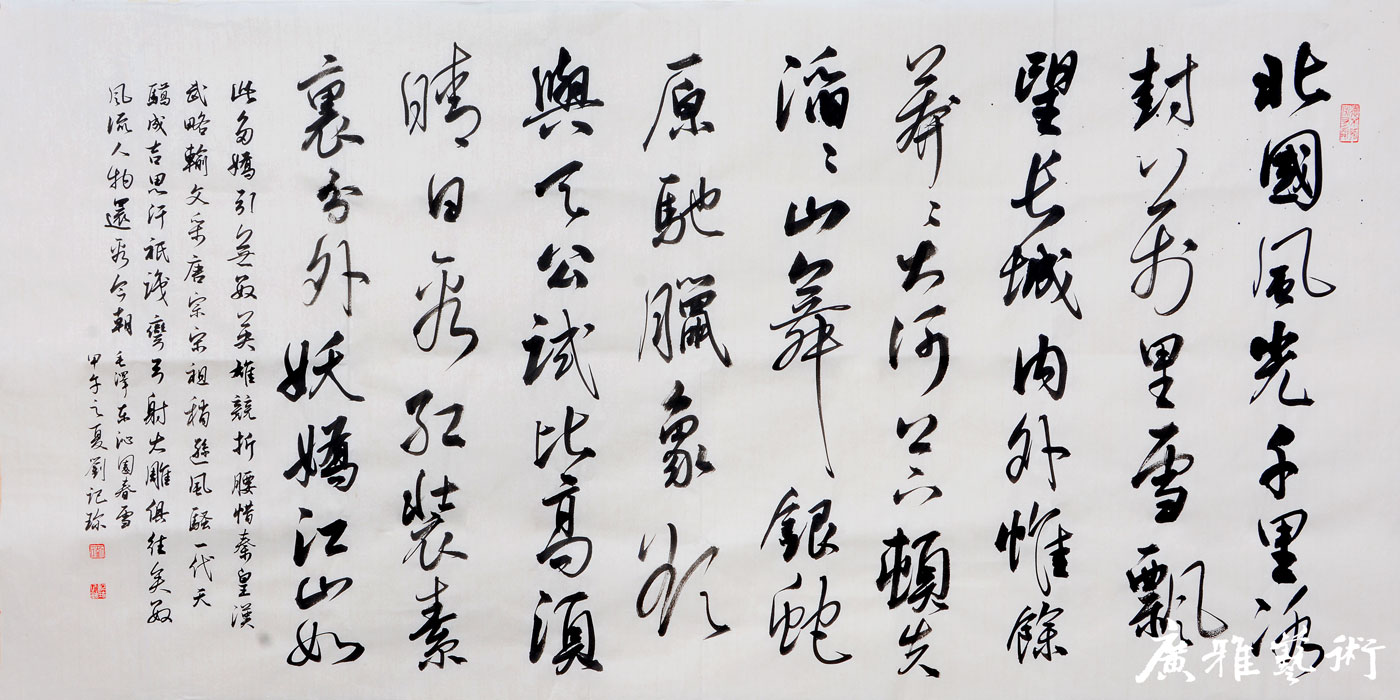 北國風光千里冰
封萬里雪飄
望長城内外惟餘
莽〻大河上下頓失
滔〻山舞銀蛇
原馳臘象欲
與天公試比高須
晴日看紅裝素
裹分外妖嬌江山如
此多嬌引無數英雄競折腰惜秦皇漢
武略輸文采唐宗宋祖稍遜風騷一代天
驕成吉思汗祇識彎弓射大雕俱往矣數
風流人物還看今朝 毛澤東沁園春雪
甲午之夏劉記珍
廣雅藝術